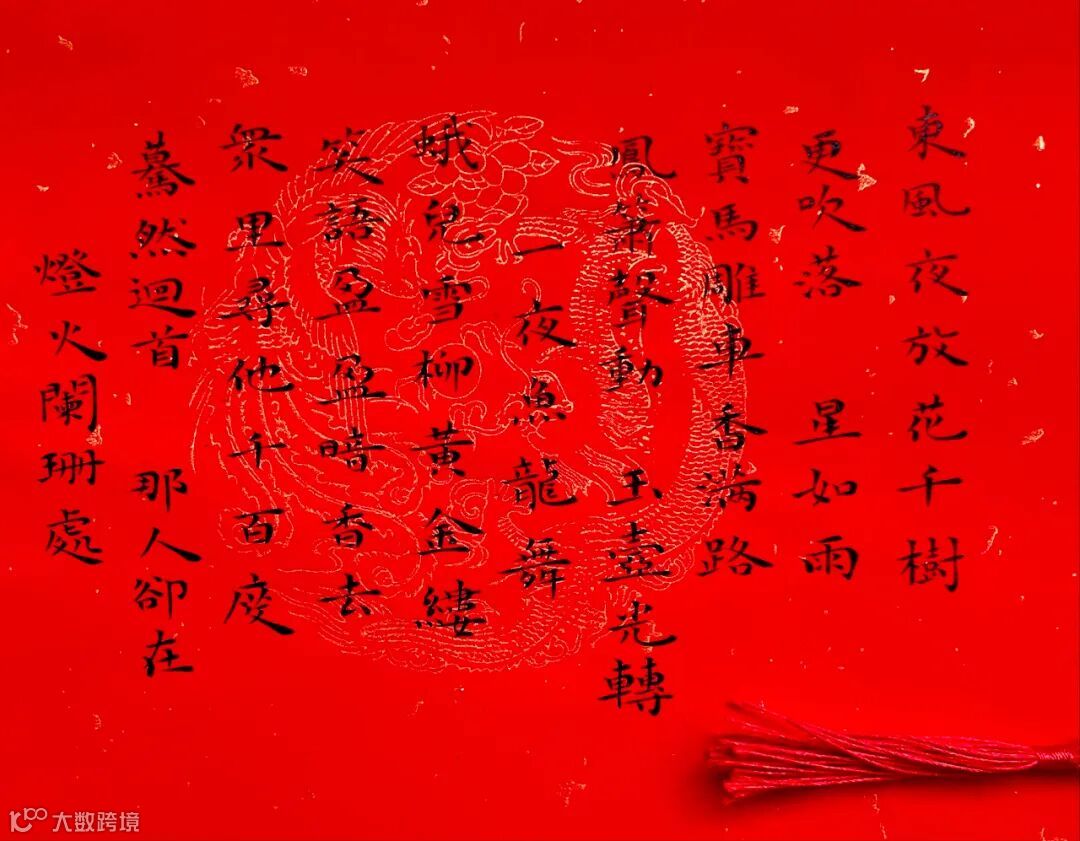 東風夜放花千樹
更吹落 星如雨
寶馬雕車香满路
鳳箫聲動 玉壺光轉
一夜魚龍舞
蛾兒雪柳黃金縷
笑語盈盈暗香去
衆里尋他千百度
驀然迴首 那人卻在
燈火闌珊處
大数跨境